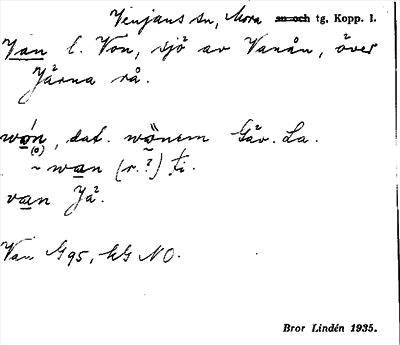 Venjans sn, Mora sn och tg. Kopp. l.
Van l. Von, sjö av Vanån, över
Järna rå.
wón, dat. wönem Gäv. La.
(o)
~ wan (r.?) ti.
van Jä.
Van G95, KG NO.
Bror Lindén 1935.